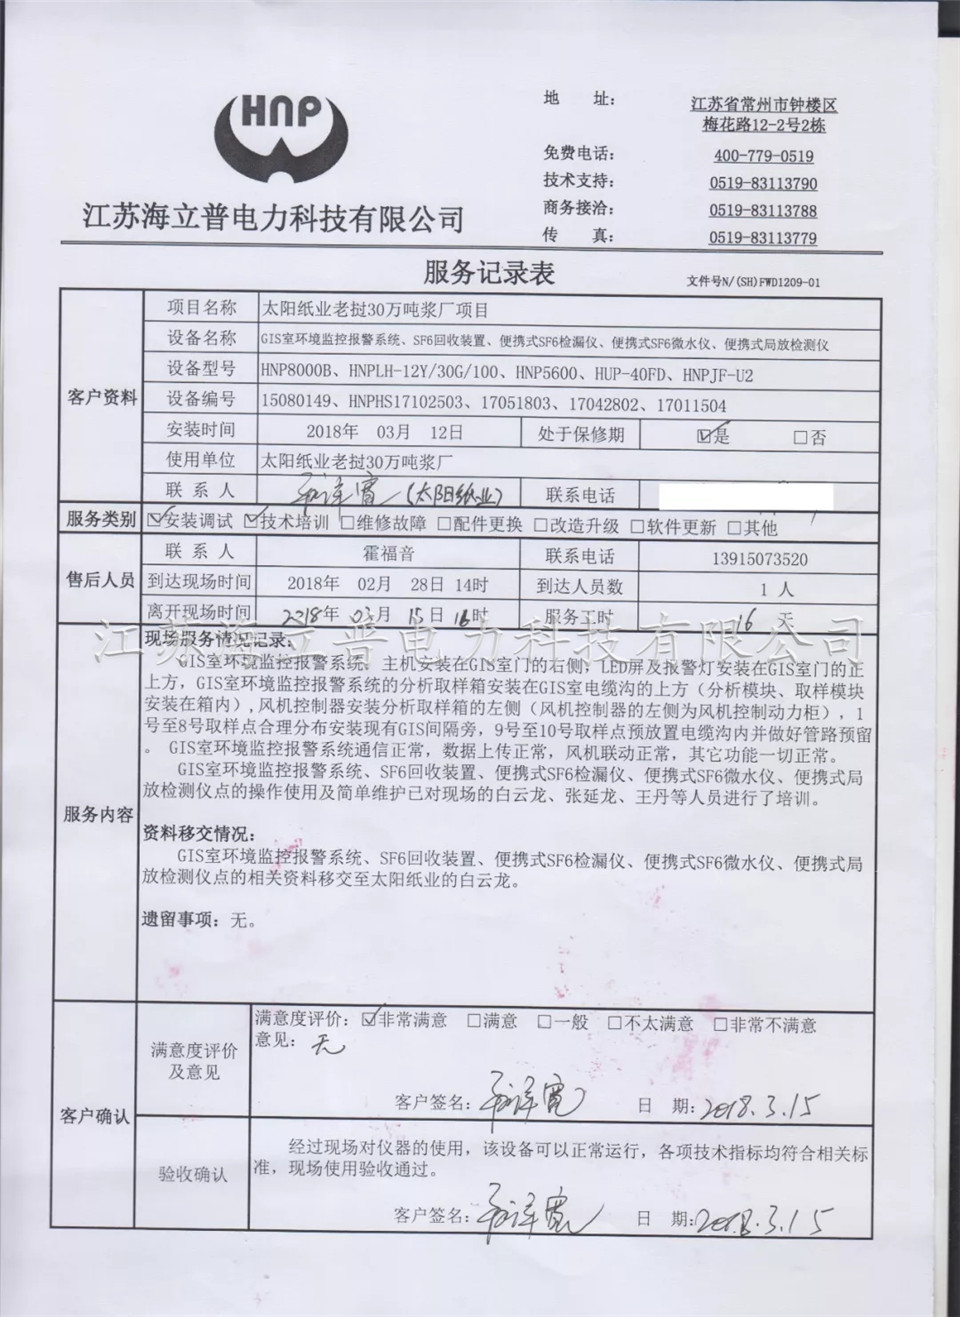 HNP
江苏海立普电力科技有限公司
地 址： 江苏省常州市钟楼区
梅花路12-2号2栋
免费电话： 400-779-0519
技术支持： 0519-83113790
商务接洽： 0519-83113788
传 真： 0519-83113779
服务记录表
文件号N/(SH)FWD1209-01
客户资料
项目名称 太阳纸业老挝30万吨浆厂项目
设备名称 GIS室环境监控报警系统、SF6回收装置、便携式SF6检漏仪、便携式SF6微水仪、便携式局放检测仪
设备型号 HNP8000B、HNPLH-12Y/30G/100、HNP5600、HUP-40FD、HNPJF-U2
设备编号 15080149、HNPHS17102503、17051803、17042802、17011504
安装时间 2018年 03月 12日 处于保修期 ☑是 □否
使用单位 太阳纸业老挝30万吨浆厂
联 系 人 (太阳纸业) 联系电话
服务类别 ☑安装调试 ☑技术培训 □维修故障 □配件更换 □改造升级 □软件更新 □其他
售后人员
联 系 人 霍福音 联系电话 13915073520
到达现场时间 2018年 02月 28日 14时 到达人员数 1 人
离开现场时间 2018年 03月 15日 16时 服务工时 16 天
江苏海立普电力科技有限公司
服务内容
现场服务情况记录：
GIS室环境监控报警系统、主机安装在GIS室门的右侧，LED屏及报警灯安装在GIS室门的正
上方，GIS室环境监控报警系统的分析取样箱安装在GIS室电缆沟的上方（分析模块、取样模块
安装在箱内）,风机控制器安装分析取样箱的左侧（风机控制器的左侧为风机控制动力柜），1
号至8号取样点合理分布安装现有GIS间隔旁，9号至10号取样点预放置电缆沟内并做好管路预留
。 GIS室环境监控报警系统通信正常，数据上传正常，风机联动正常，其它功能一切正常。
GIS室环境监控报警系统、SF6回收装置、便携式SF6检漏仪、便携式SF6微水仪、便携式局
放检测仪点的操作使用及简单维护已对现场的白云龙、张延龙、王丹等人员进行了培训。
资料移交情况：
GIS室环境监控报警系统、SF6回收装置、便携式SF6检漏仪、便携式SF6微水仪、便携式局
放检测仪点的相关资料移交至太阳纸业的白云龙。
遗留事项：无。
客户确认
满意度评价
及意见
满意度评价：☑非常满意 □满意 □一般 □不太满意 □非常不满意
意见：无
客户签名： 日 期：2018.3.15
验收确认
经过现场对仪器的使用，该设备可以正常运行，各项技术指标均符合相关标
准，现场使用验收通过。
客户签名： 日 期：2018.3.15